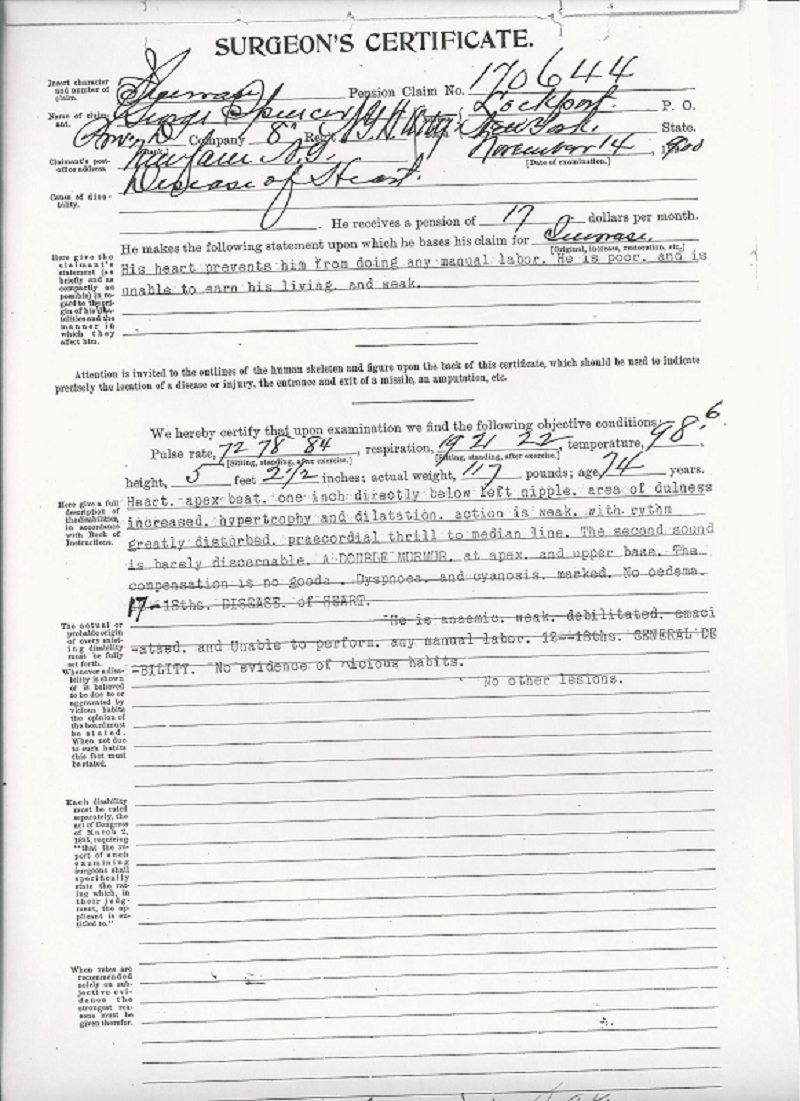 SURGEON'S CERTIFICATE.
Insert character and number of claim.
Increase Pension Claim No. 170644
Name of claimant.
George Spencer Lockport. P. O.
Company 8" Reg't N.Y. H. Art'y New York. State.
[Rank.]
Claimant's post-office address.
Newfane N.Y. November 14, 1900
[Date of examination.]
Cause of disability.
Disease of Heart.
He receives a pension of 17 dollars per month.
He makes the following statement upon which he bases his claim for Increase.
[Original, increase, restoration, etc.]
Here give the claimant's statement (as briefly and as compactly as possible) in regard to the origin of his disabilities and the manner in which they affect him.
His heart prevents him from doing any manual labor. He is poor. and is
unable to earn his living. and weak.
Attention is invited to the outlines of the human skeleton and figure upon the back of this certificate, which should be used to indicate
precisely the location of a disease or injury, the entrance and exit of a missile, an amputation, etc.
We hereby certify that upon examination we find the following objective conditions:
Pulse rate, 72 78 84, respiration, 19 21 22, temperature, 98.6.
[Sitting, standing, after exercise.] [Sitting, standing, after exercise.]
height, 5 feet 2 1/2 inches; actual weight, 117 pounds; age, 74 years.
Here give a full description of the disabilities, in accordance with Book of Instructions.
Heart. apex beat. one inch directly below left nipple. area of dulness
increased. hypertrophy and dilatation. action is weak. with rythm
greatly disturbed. praecordial thrill to median line. The second sound
is barely discernable. A DOUBLE MURMUR. at apex. and upper base. The
compensation is no goods . Dyspnoea. and cyanosis. marked. No oedema.
17-18ths. DISEASE. of HEART.
He is anaemic. weak. debilitated. emaci
-ated. and Unable to perform. any manual labor. 12--18ths. GENERAL DE
-BILITY. No evidence of vicious habits.
No other lesions.
The actual or probable origin of every existing disability must be fully set forth.
Whenever a disability is shown or is believed to be due to or aggravated by vicious habits the opinion of the board must be stated. When not due to such habits this fact must be stated.
Each disability must be rated separately, the act of Congress of March 2, 1895, requiring "that the report of such examining surgeons shall specifically state the rating which, in their judgment, the applicant is entitled to."
When rates are recommended solely on subjective evidence the strongest reasons must be given therefor.